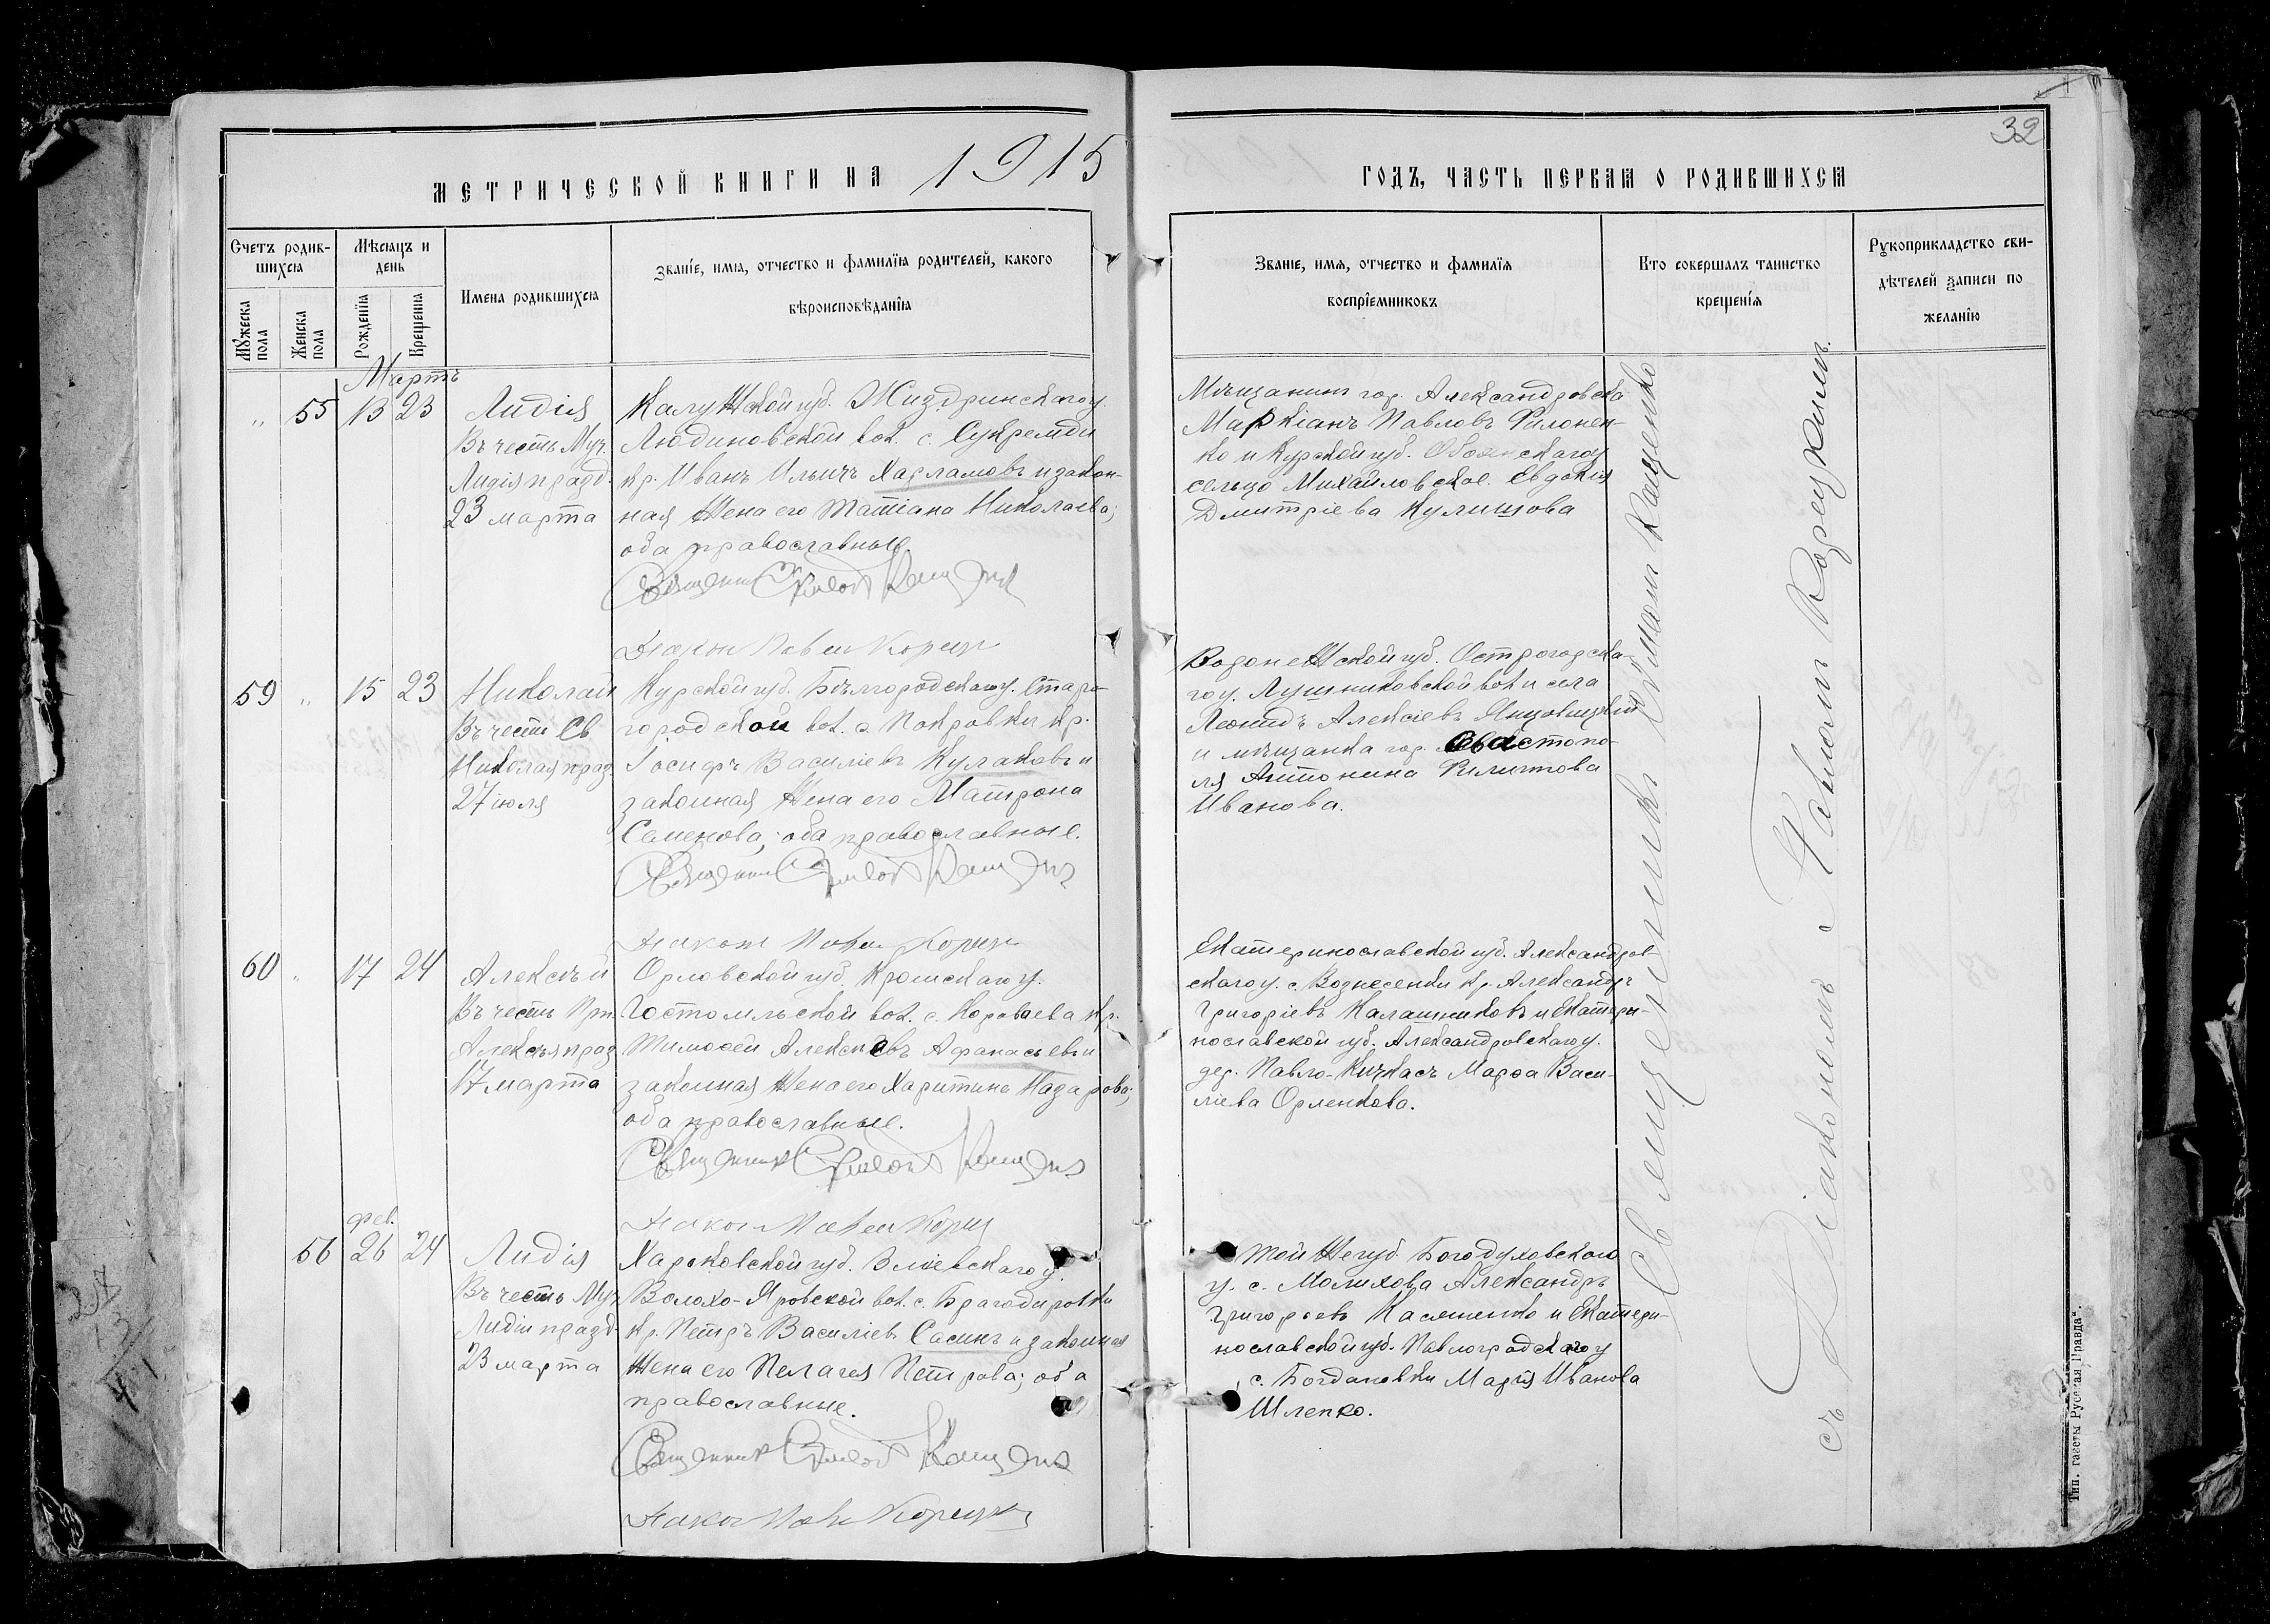 32
МЕТРИЧЕСКОЙ КНИГИ НА 1915
ГОДЪ, ЧАСТЬ ПЕРВАЯ О РОДИВШИХСЯ
Счетъ родив-
шихся
Мѣсяцъ и
день
Мужеска
пола
Женска
пола
Рожденія
Крещенія
Имена родившихся
Званіе, имя, отчество и фамилія родителей, какого
вѣроисповѣданія
Званіе, имя, отчество и фамилія
воспріемниковъ
Кто совершалъ таинство
крещенія
Рукоприкладство сви-
дѣтелей записи по
желанію
Мартъ
„ 55 13 23
Лидія
Въ честь Муч.
Лидія празд.
23 марта
Калужской губ. Жиздринскаго у.
Людиновской вол. с. Сукремли
кр. Иванъ Ильичъ Харламовъ и закон-
ная жена его Татіана Николаева;
оба православные.
Священникъ Симеонъ Кащенко
Діаконъ Павелъ
Мѣщанинъ гор. Александровска
Маркіанъ Павловъ Филонен-
ко и Курской губ. Обоянскаго у.
сельцо Михайловское. Евдокія
Дмитріева Кулишова
59 „ 15 23
Николай
Въ честь Св
Николая праз.
27 іюля
Курской губ. Бѣлгородскаго у. Старо-
городской вол. с. Покровки кр.
Іосифъ Василіевъ Кулаковъ и
законная жена его Матрона
Семенова; оба православные.
Священникъ Симеонъ Кащенко
Діаконъ Павелъ
Воронежской губ. Острогожска-
го у. Лушниковской вол. и села
Леонидъ Алексіевъ
и мѣщанка гор. Севастопо-
ля Антонина Филиппова
Иванова.
60 „ 17 24
Алексѣй
Въ честь Прп.
Алексѣя праз
17 марта
Орловской губ. Кромскаго у.
Гостомльской вол. с. Короваева кр.
Тимоѳей Алексѣевъ Афанасьевъ и
законная жена его Харитина Назарова;
оба православные.
Священникъ Симеонъ Кащенко
Діаконъ Павелъ
Екатеринославской губ. Александров-
скаго у. с. Вознесенки кр. Александръ
Григоріевъ Калашниковъ и Екатери-
нославской губ. Александровскаго у.
дер. Павло-Кичкасъ Марѳа Васи-
ліева Орленкова.
фев.
56 26 24
Лидія
Въ честь Муч
Лидіи празд.
23 марта
Харьковской губ. Зміевскаго у.
Волохо-Яровской вол. с. Брагодировки
кр. Петръ Василіевъ Сасинъ и законная
жена его Пелагея Петрова; оба
православные.
Священникъ Симеонъ Кащенко
Діаконъ Павелъ
Той же губ. Богодуховскаго
у. с. Малихова Александръ
Григорьевъ Касяненко и Екатери-
нославской губ. Павлоградскаго у
с. Богдановки Марія Иванова
Шлепко.
Священникъ Симеонъ Кащенко
съ Діакономъ Павломъ
Тип. газеты Русская Правда".